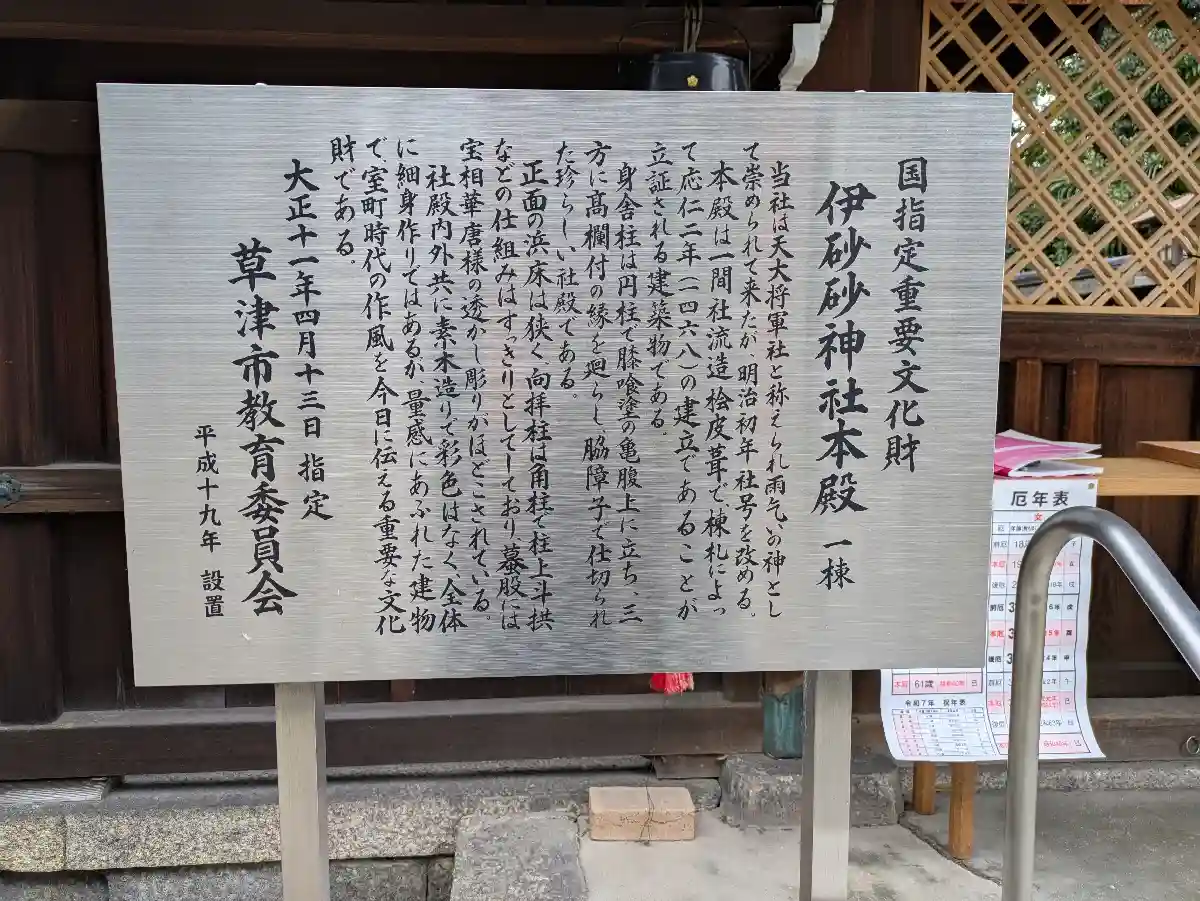 国指定重要文化財
伊砂砂神社本殿 一棟
当社は天大将軍社と称えられ雨乞いの神とし
て崇められて来たが、明治初年社号を改める。
本殿は一間社流造桧皮葺で棟札によっ
て応仁二年(一四六八)の建立であることが
立証される建築物である。
身舎柱は円柱で膝喰塗の亀腹上に立ち、三
方に高欄付の縁を廻らし、脇障子で仕切られ
た珍らしい社殿である。
正面の浜床は狭く、向拝柱は角柱で柱上斗拱
などの仕組みはすっきりとしてしており、蟇股には
宝相華唐様の透かし彫りがほどこされている。
社殿内外共に素木造りで彩色はなく、全体
に細身作りではあるが、量感にあふれた建物
で室町時代の作風を今日に伝える重要な文化
財である。
大正十一年四月十三日指定
草津市教育委員会
平成十九年 設置
厄年表
本厄 61歳
令和7年 祝年表